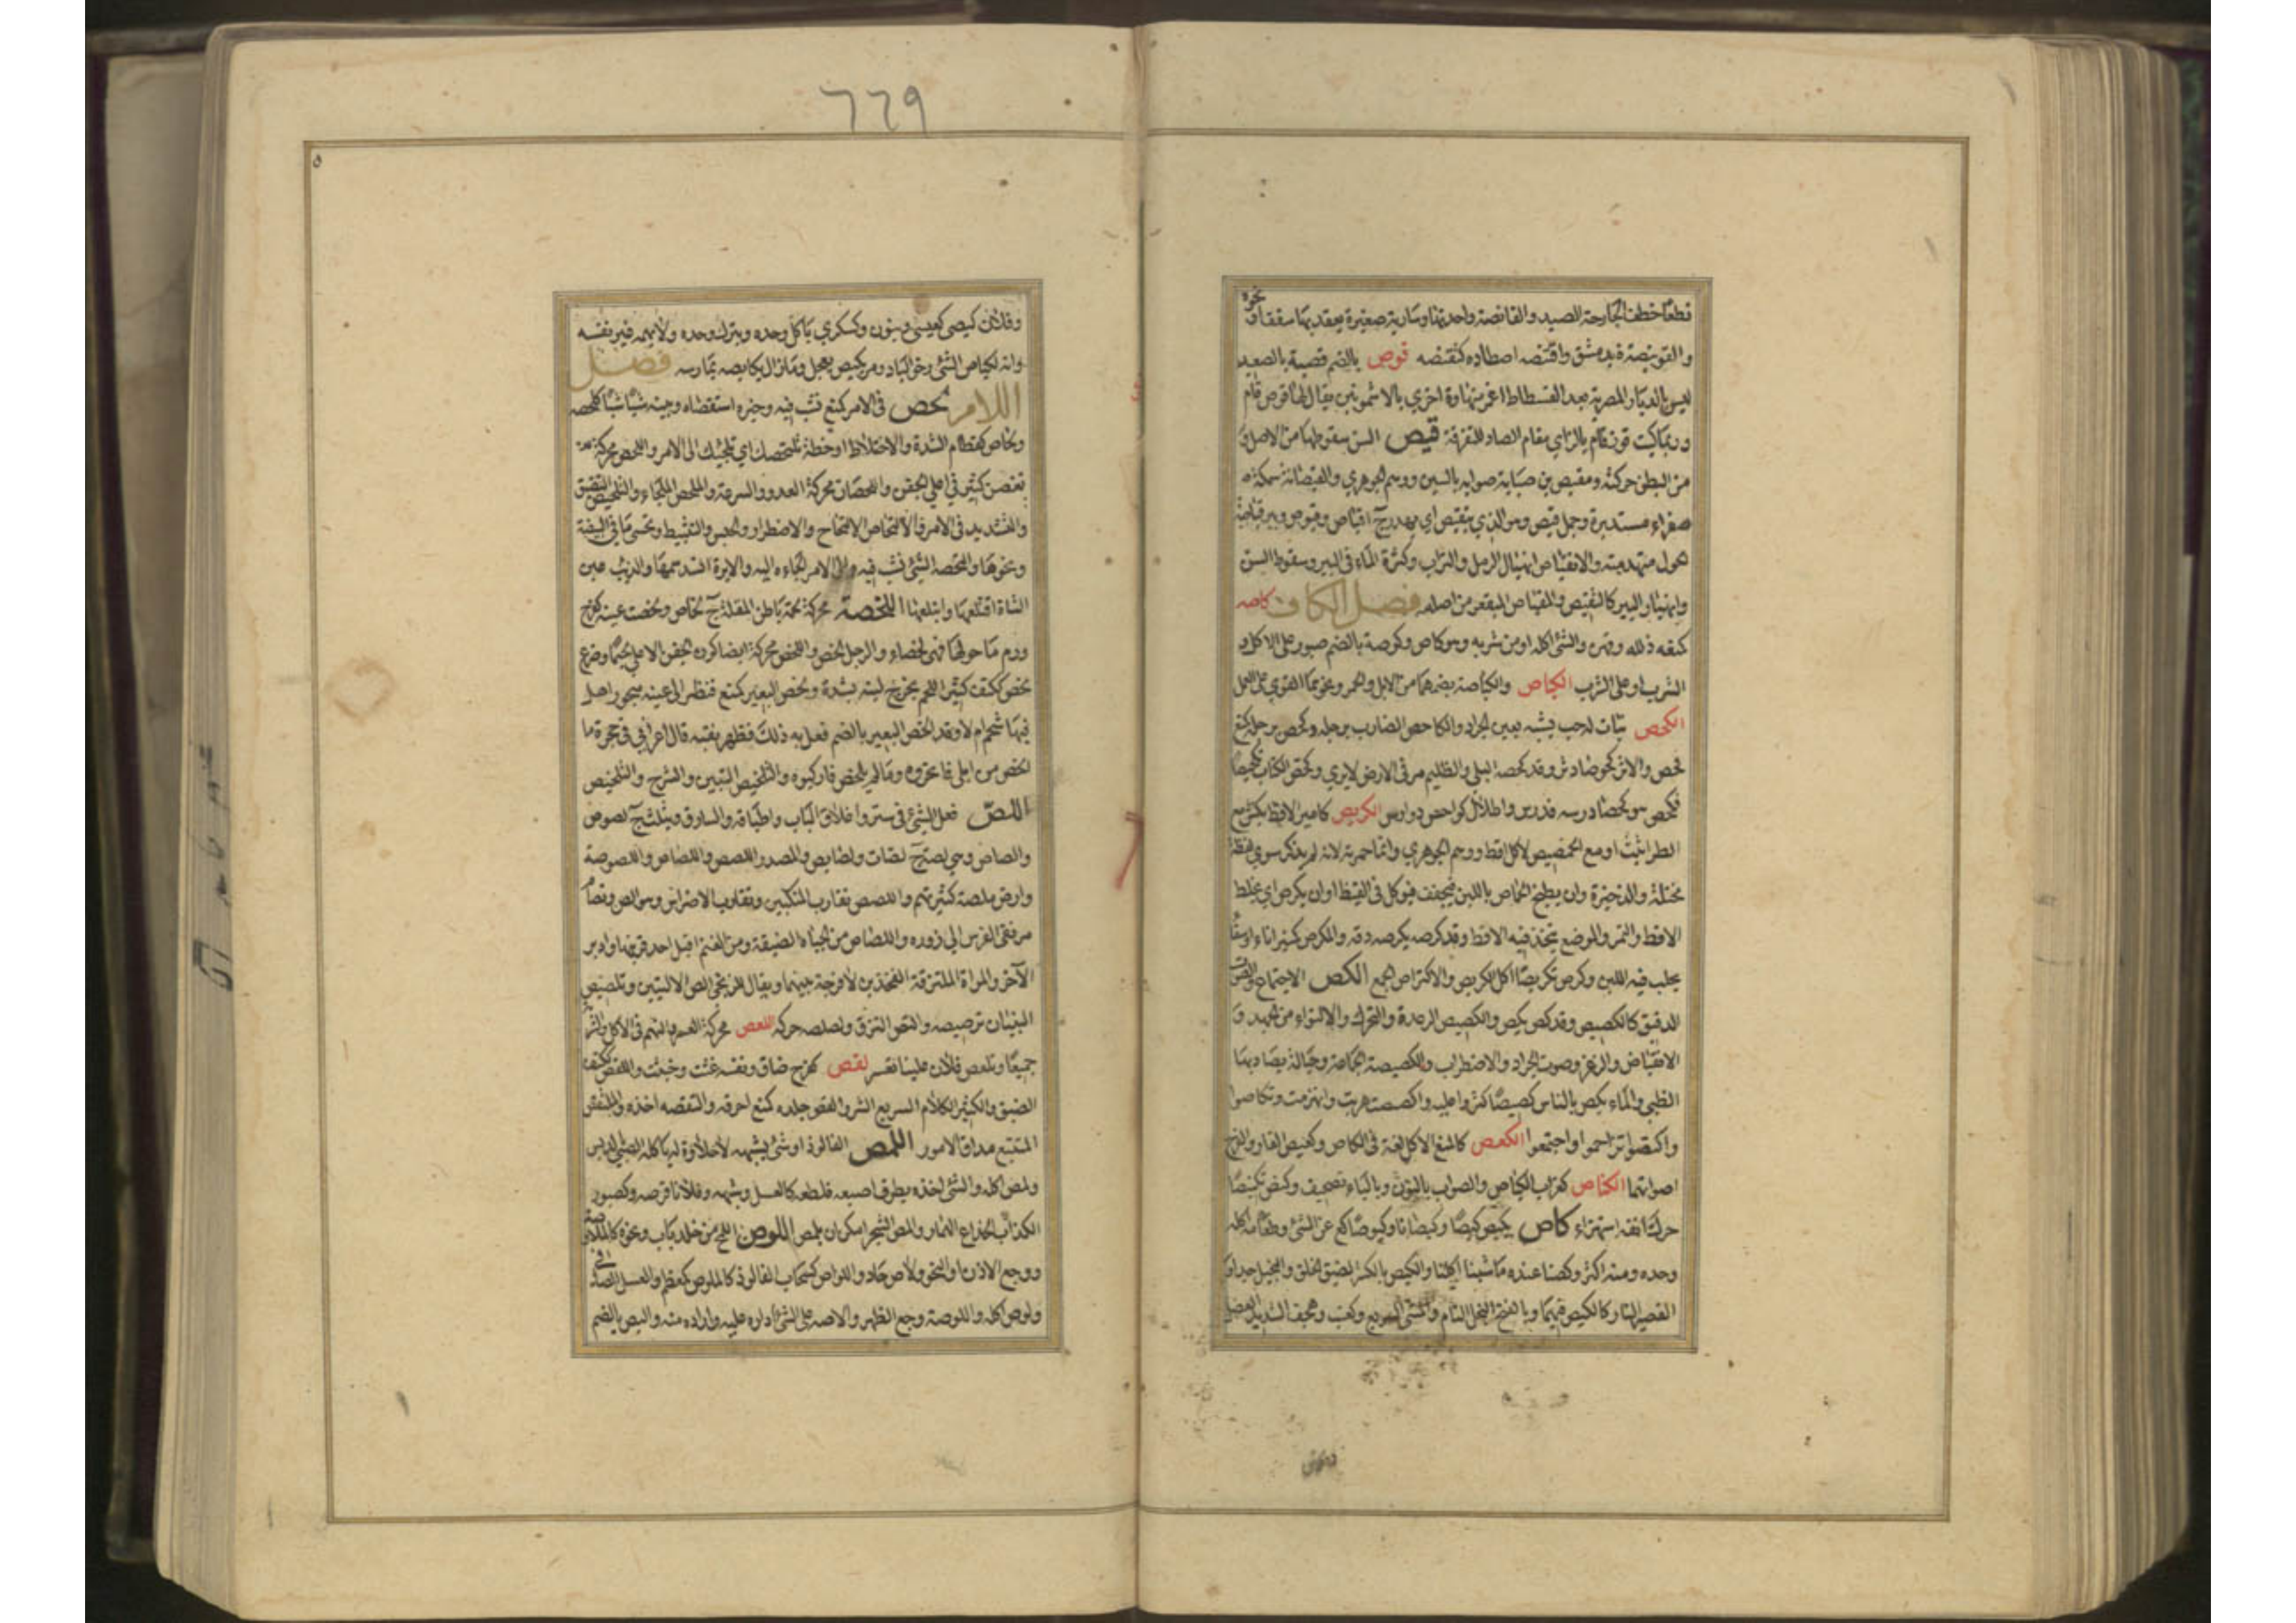 قطعا خطف الجارحة للصيد والقانصة واحدتها وسارية صغيرة يعقد بها سقف او نحوه
والقوينصة ة بدمشق واقتنصه اصطاده كتقنصه قوص بالضم قصبة بالصعيد
ليس بالديار المصرية بعد الفسطاط اعمر منها وة اخرى بالاشمونين يقال لها قوص قام
وربما كتبت قوز قام بالزاي مقام الصاد للتفرقة قيص السن سقوطها من الاصل و
من البطن حركته ومقيص بن صبابة صوابه بالسين ووهم الجوهري والقيصانة سمكة
صفراء مستديرة وجمل قيص وهو الذي يتقيص اي يهدر ج اقياص وقيوص وبير قياصة
الجول متهدمته والانقياص انهيال الرمل والتراب وكثرة الماء في البير وسقوط السن
وانهيار البير كالتقيص والمنقاص المنقعر من اصله فصل الكاف كاصه
كمنعه ذلله وقهره والشئ اكله او من شربه وهو كاص وكوصة بالضم صبور على الاكل و
الشرب او على الشرب الكباص والكباصة بضمهما من الابل والحمر ونحوهما القوي على العمل
الكحص نبات له حب يشبه بعين الجراد والكاحص الضارب برجله وكحص برجله كمنع
فحص والاثر كحوصا دثر وقد كحصه البلى والظليم مر في الارض لا يرى وكحص الكتاب تكحيصا
فكحص هو كحصا درسه فدرس واطلال كواحص دوارس الكريص كامير الاقط يكنز مع
الطراثيث او مع الحمصيص لا كل اقط ووهم الجوهري وانما حمرته لانه لم يذكر سوى لفظة
مختلة والذخيرة وان يطبخ الحماض باللبن فيجفف فيوكل في القيظ او ان يكرص اي يخلط
الاقط والتمر والموضع يتخذ فيه الاقط وقد كرصه يكرصه دقه والمكرص كمنبر اناء او سقاء
يحلب فيه اللبن وكرص تكريصا اكل الكريص والاكتراص الجمع الكص الاجتماع والصوت
الدقيق كالكصيص وقد كص يكص والكصيص الرعدة والتحرك والالتواء من الجهد و
الانقباض والذعر وصوت الجراد والاضطراب والكصيصة الجماعة وحبالة يصاد بها
الظبي والماء يكص بالناس كصيصا كثروا عليه واكصصت هربت وانهزمت وتكاصوا
واكتصوا تزاحموا واجتمعوا الكعص كالمنع الاكل لغة في الكاص وكعيص الفار والفرخ
اصواتهما الكناص كغراب الكباص والصواب بالنون وبالباء تصحيف وكنص تكنيصا
حرك انفه استهزاء كاص يكيص كيصا وكيصانا وكيوصا كع عن الشئ وطعامه اكله
وحده ومنه اكثر وكصنا عنده ما شينا اكلنا والكيص بالكسر الضيق الخلق والبخيل جدا و
القصير التار كالكيص فيهما وبالفتح البخل التام والمشي السريع وكعنب وهجف الشديد العضل
٦٦٩
وفلان كيصى كعيسى وينون وكسكرى ياكل وحده وينزل وحده ولا يهمه غير نفسه
وانه لكياص الشئ رخو الباد ومر يكيص يعجل وما زال يكايصه يمارسه فصل
اللام لحص في الامر كمنع نشب فيه وخبره استقصاه وبينه شيا شيا كلحصه
ولحاص كقطام الشدة والاختلاط او خطة تلتحصك اي تلجئك الى الامر واللحص محركة
تغضن كثير في اعلى الجفن واللحصان محركة العدو والسرعة والملحص الملجاء والتلحيص التضييق
والتشديد في الامر والالتحاص الالتحاج والاضطرار والحبس والتثبيط وتحسى ما في البيضة
ونحوها والتحصه الشئ نشب فيه والى الامر الجاءه اليه والابرة انسد سمها والذئب عين
الشاة اقتلعها وابتلعها اللخصة محركة لحمة باطن المقلة ج لخاص ولخصت عينه كفرح
ورم ما حولها فهي لخصاء والرجل لخص واللخص محركة ايضا كون الجفن الاعلى لحيما وضرع
لخص ككتف كثير اللحم يخرج لبنه بشدة ولخص البعير كمنع فنظر الى عينه منحورا هل
فيها شحم ام لا وقد الخص البعير بالضم فعل به ذلك فظهر نقيه قال اعرابي في حجرة ما
لخص من ابلى فانحروه وما لم يلخص فاركبوه والتلخيص التبيين والشرح والتلخيص
اللص فعل الشئ في ستر واغلاق الباب واطباقه والسارق ويثلث ج لصوص
والصاص وهي لصة ج لصات ولصايص والمصدر اللصص واللصاص واللصوصة
وارض ملصة كثيرتهم واللصص تقارب المنكبين وتقارب الاضراس وهو الص وتضام
مرفقي الفرس الى زوره واللصاء من الجباه الضيقة ومن الغنم اقبل احد قرنيها وادبر
الآخر والمراة الملتزقة الفخذين لا فرجة بينهما ويقال للزنجي الص الاليتين وتلصيص
البنيان ترصيصه والتص التزق ولصلصه حركه اللعص محركة العسر والنهم في الاكل والشرب
جميعا وتلعص فلان علينا تعسر لقص كفرح ضاق ونفسه غثت وخبثت واللقص ككتف
الضيق والكثير الكلام السريع الشر ولقص جلده كمنع احرقه والتقصه اخذه والملتقص
المتتبع مداق الامور اللمص الفالوذ او شئ يشبهه لا حلاوة له ياكله الصبي بالدبس
ولمص اكله والشئ اخذه بطرف اصبعه فلطعه كالعسل وشبهه وفلانا قرصه وكصبور
الكذاب الخداع الهماز والمص الشجر امكن ان يلمص اللوص اللمح من خلل باب ونحوه كالملاوصة
ووجع الاذن او النحر ولاص حاد واللواص كسحاب الفالوذ كالملوص كمعظم والعسل الصافي
ولوص اكله واللوصة وجع الظهر والاصه على الشئ اداره عليه واراده منه واليص بالضم